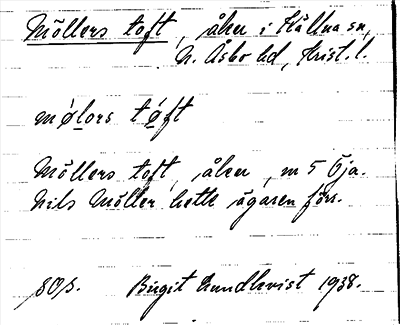 Möllers toft, åker i Källna sn,
N. Åsbo hd, Krist. l.
mǿlors tǿft
Möllers toft, åker, m 5 Öja.
Nils Möller hette ägaren förr.
Birgit Lundkvist 1938.